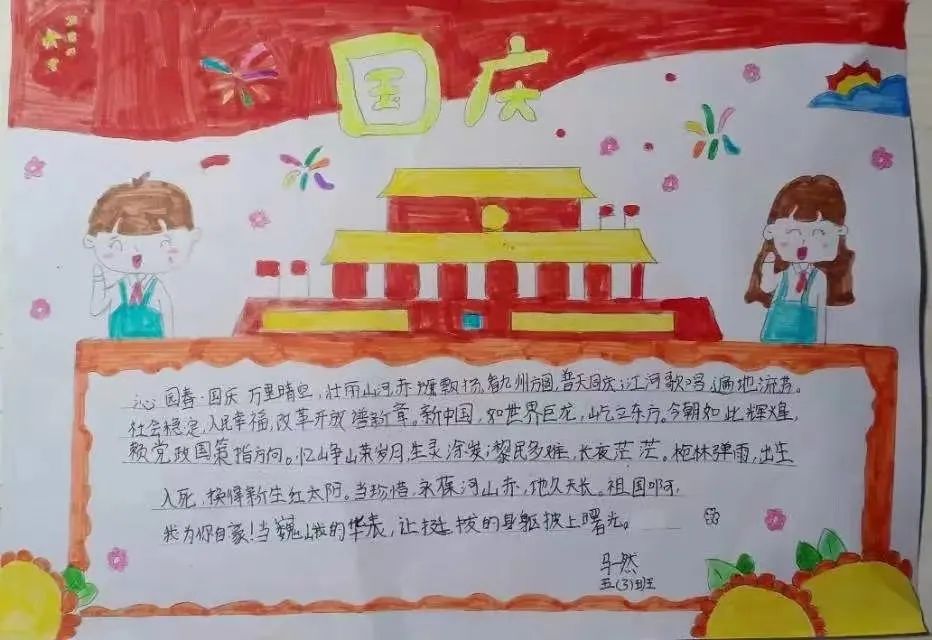 国庆
沁园春·国庆 万里晴空,壮丽山河赤旗飘扬,看九州方圆,普天同庆;江河歌唱,遍地流芳。
社会稳定,人民幸福,改革开放谱新章。新中国,如世界巨龙,屹立东方。今朝如此辉煌,
赖党政国策指方向。忆峥嵘岁月,生灵涂炭;黎民多难,长夜茫茫。枪林弹雨,出生
入死,换得新生红太阳。当珍惜,永葆河山赤,地久天长。祖国啊,
我为你自豪!当巍峨的华表,让挺拔的身躯披上曙光。
马然
五(3)班